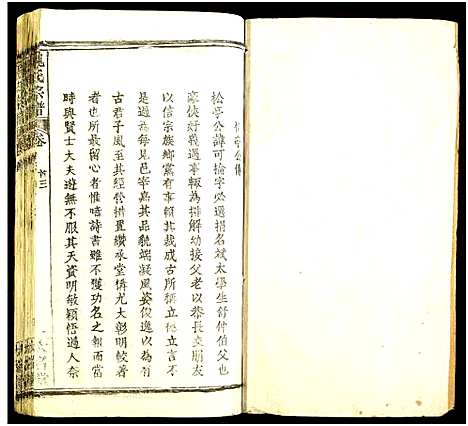 松亭公傳
松亭公諱可掄字必選捐名斌太學生舒仲伯父也
豪俠好義遇事輒為排解幼接父老以恭長交朋友
以信宗族鄉黨有事賴其裁成古所稱立他立言不
是過焉每見邑宰嘉其品貌端凝風姿俊逸以為有
古君子風至其經於措置纘承堂儕尤大彰明較著
者也所最留心者惟唔詩書雖不獲功名之報而當
時與賢士大夫遊無不服其天資明敏穎悟過人奈
氏宗譜
卷
三